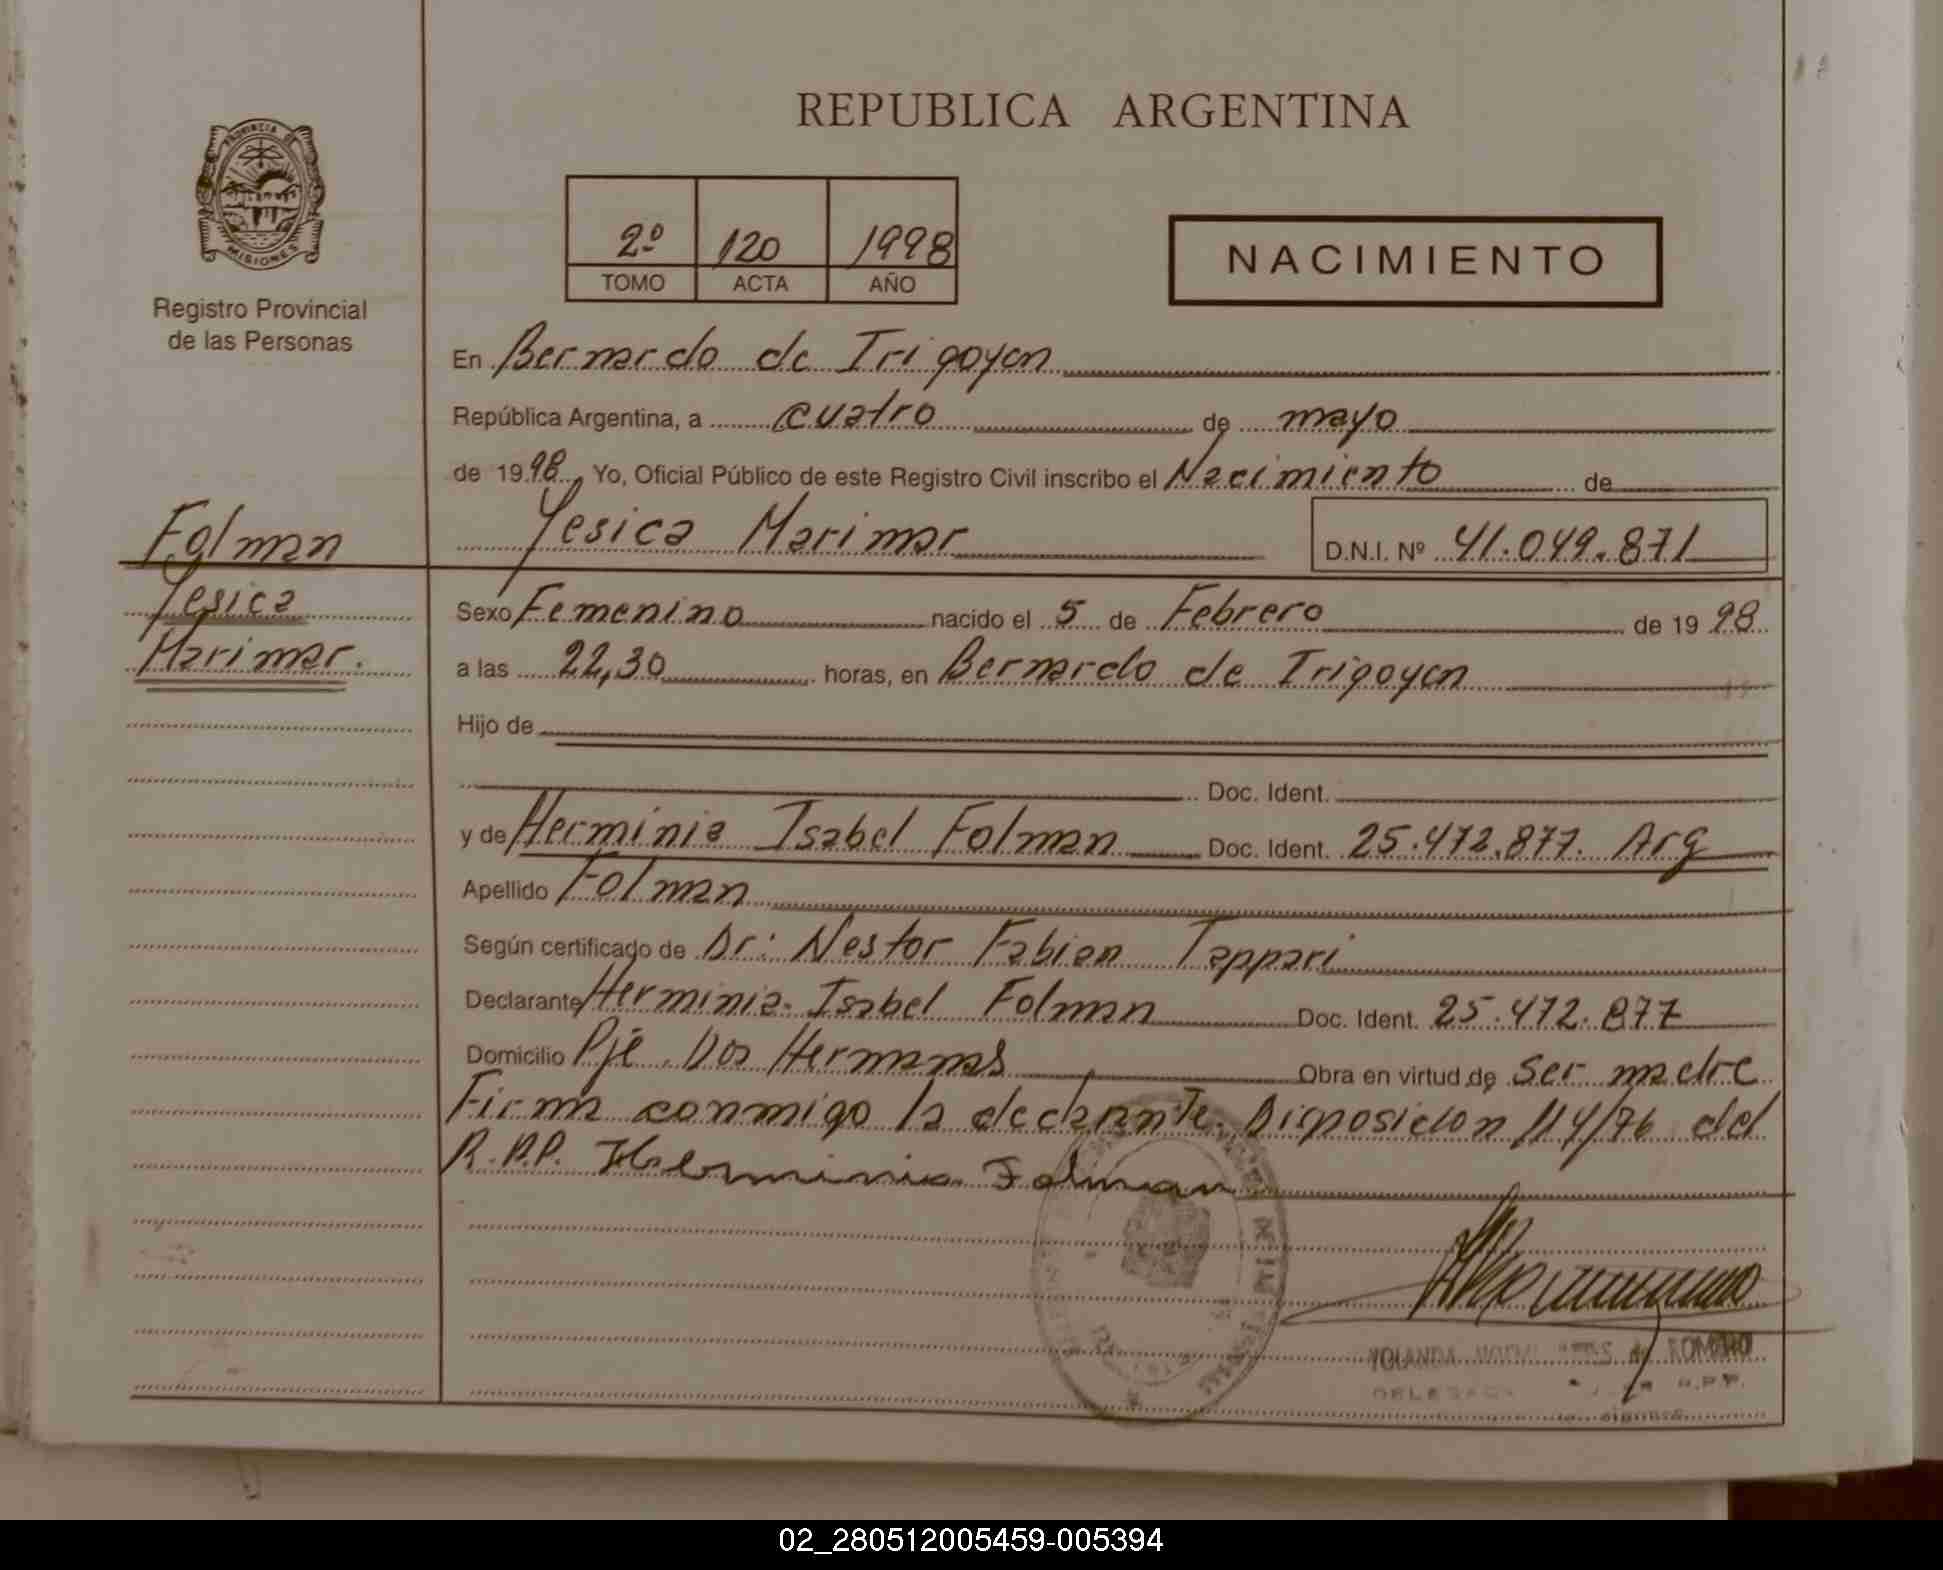 REPUBLICA ARGENTINA
PROVINCIA DE
MISIONES
Registro Provincial
de las Personas
2º 120 1998
TOMO ACTA AÑO
NACIMIENTO
En Bernardo de Irigoyen
República Argentina, a cuatro de mayo
de 1998 Yo, Oficial Público de este Registro Civil inscribo el Nacimiento de
Yesica Marimar D.N.I. Nº 41.049.871
Folman
Yesica
Marimar.
Sexo Femenino nacido el 5 de Febrero de 1998
a las 22,30 horas, en Bernardo de Irigoyen
Hijo de
Doc. Ident.
y de Herminia Isabel Folman Doc. Ident. 25.472.877. Arg
Apellido Folman
Según certificado de Dr: Nestor Fabian Tappari
Declarante Herminia Isabel Folman Doc. Ident. 25.472.877
Domicilio Pje Dos Hermanas Obra en virtud de ser madre
Firma conmigo la declarante. Disposicion 114/76 del
R.P.P. Herminia Folman
YOLANDA de ROMERO
R.P.P.
02_280512005459-005394